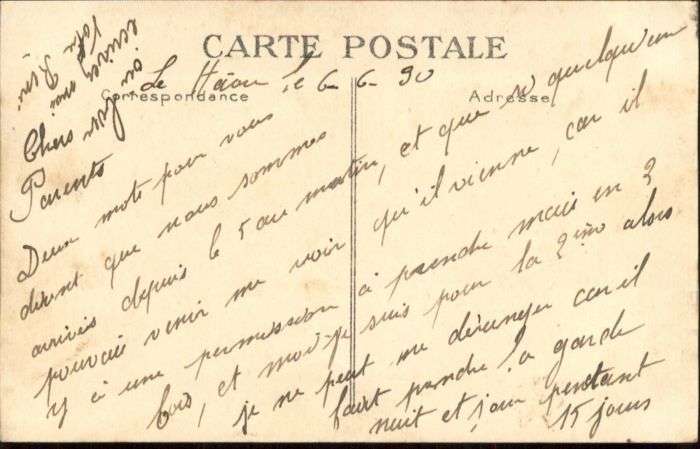 CARTE POSTALE
Le le 6-6-30
Correspondance
Adresse
Chers
Parents
Deux mots pour vous
dirent que nous sommes
arrivés depuis le 5 au matin, et que si quelqu'un
pouvais venir me voir qu'il vienne, car il
y à une permission à prendre mais en 2
fois, et moi-je suis pour la 2ème alors
je ne peut me déranger car il
faut prendre la garde
nuit et jour pendant
15 jours
moi
Votre René